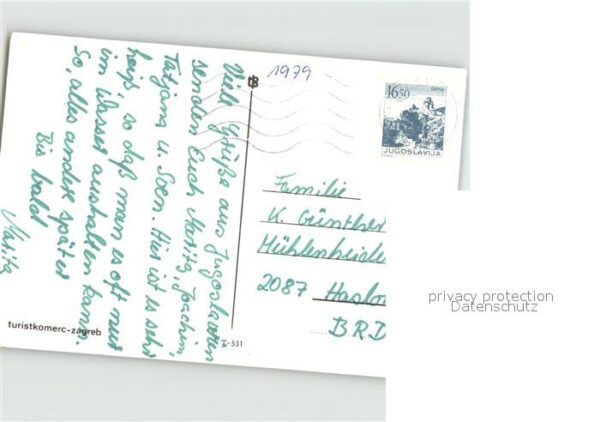 1979
16.50
JUGOSLAVIJA
Viele Grüße aus Jugoslawien
senden Euch Marita, Joachim,
Tatjana u. Sven. Hier ist es sehr
heiß, so daß man es oft nur
im Wasser aushalten kann.
So, alles andere später
Bis bald
Marita
Familie
K. Günther
Mühlenheide
2087 Haslo
BRD
turistkomerc-zagreb
privacy protection
Datenschutz